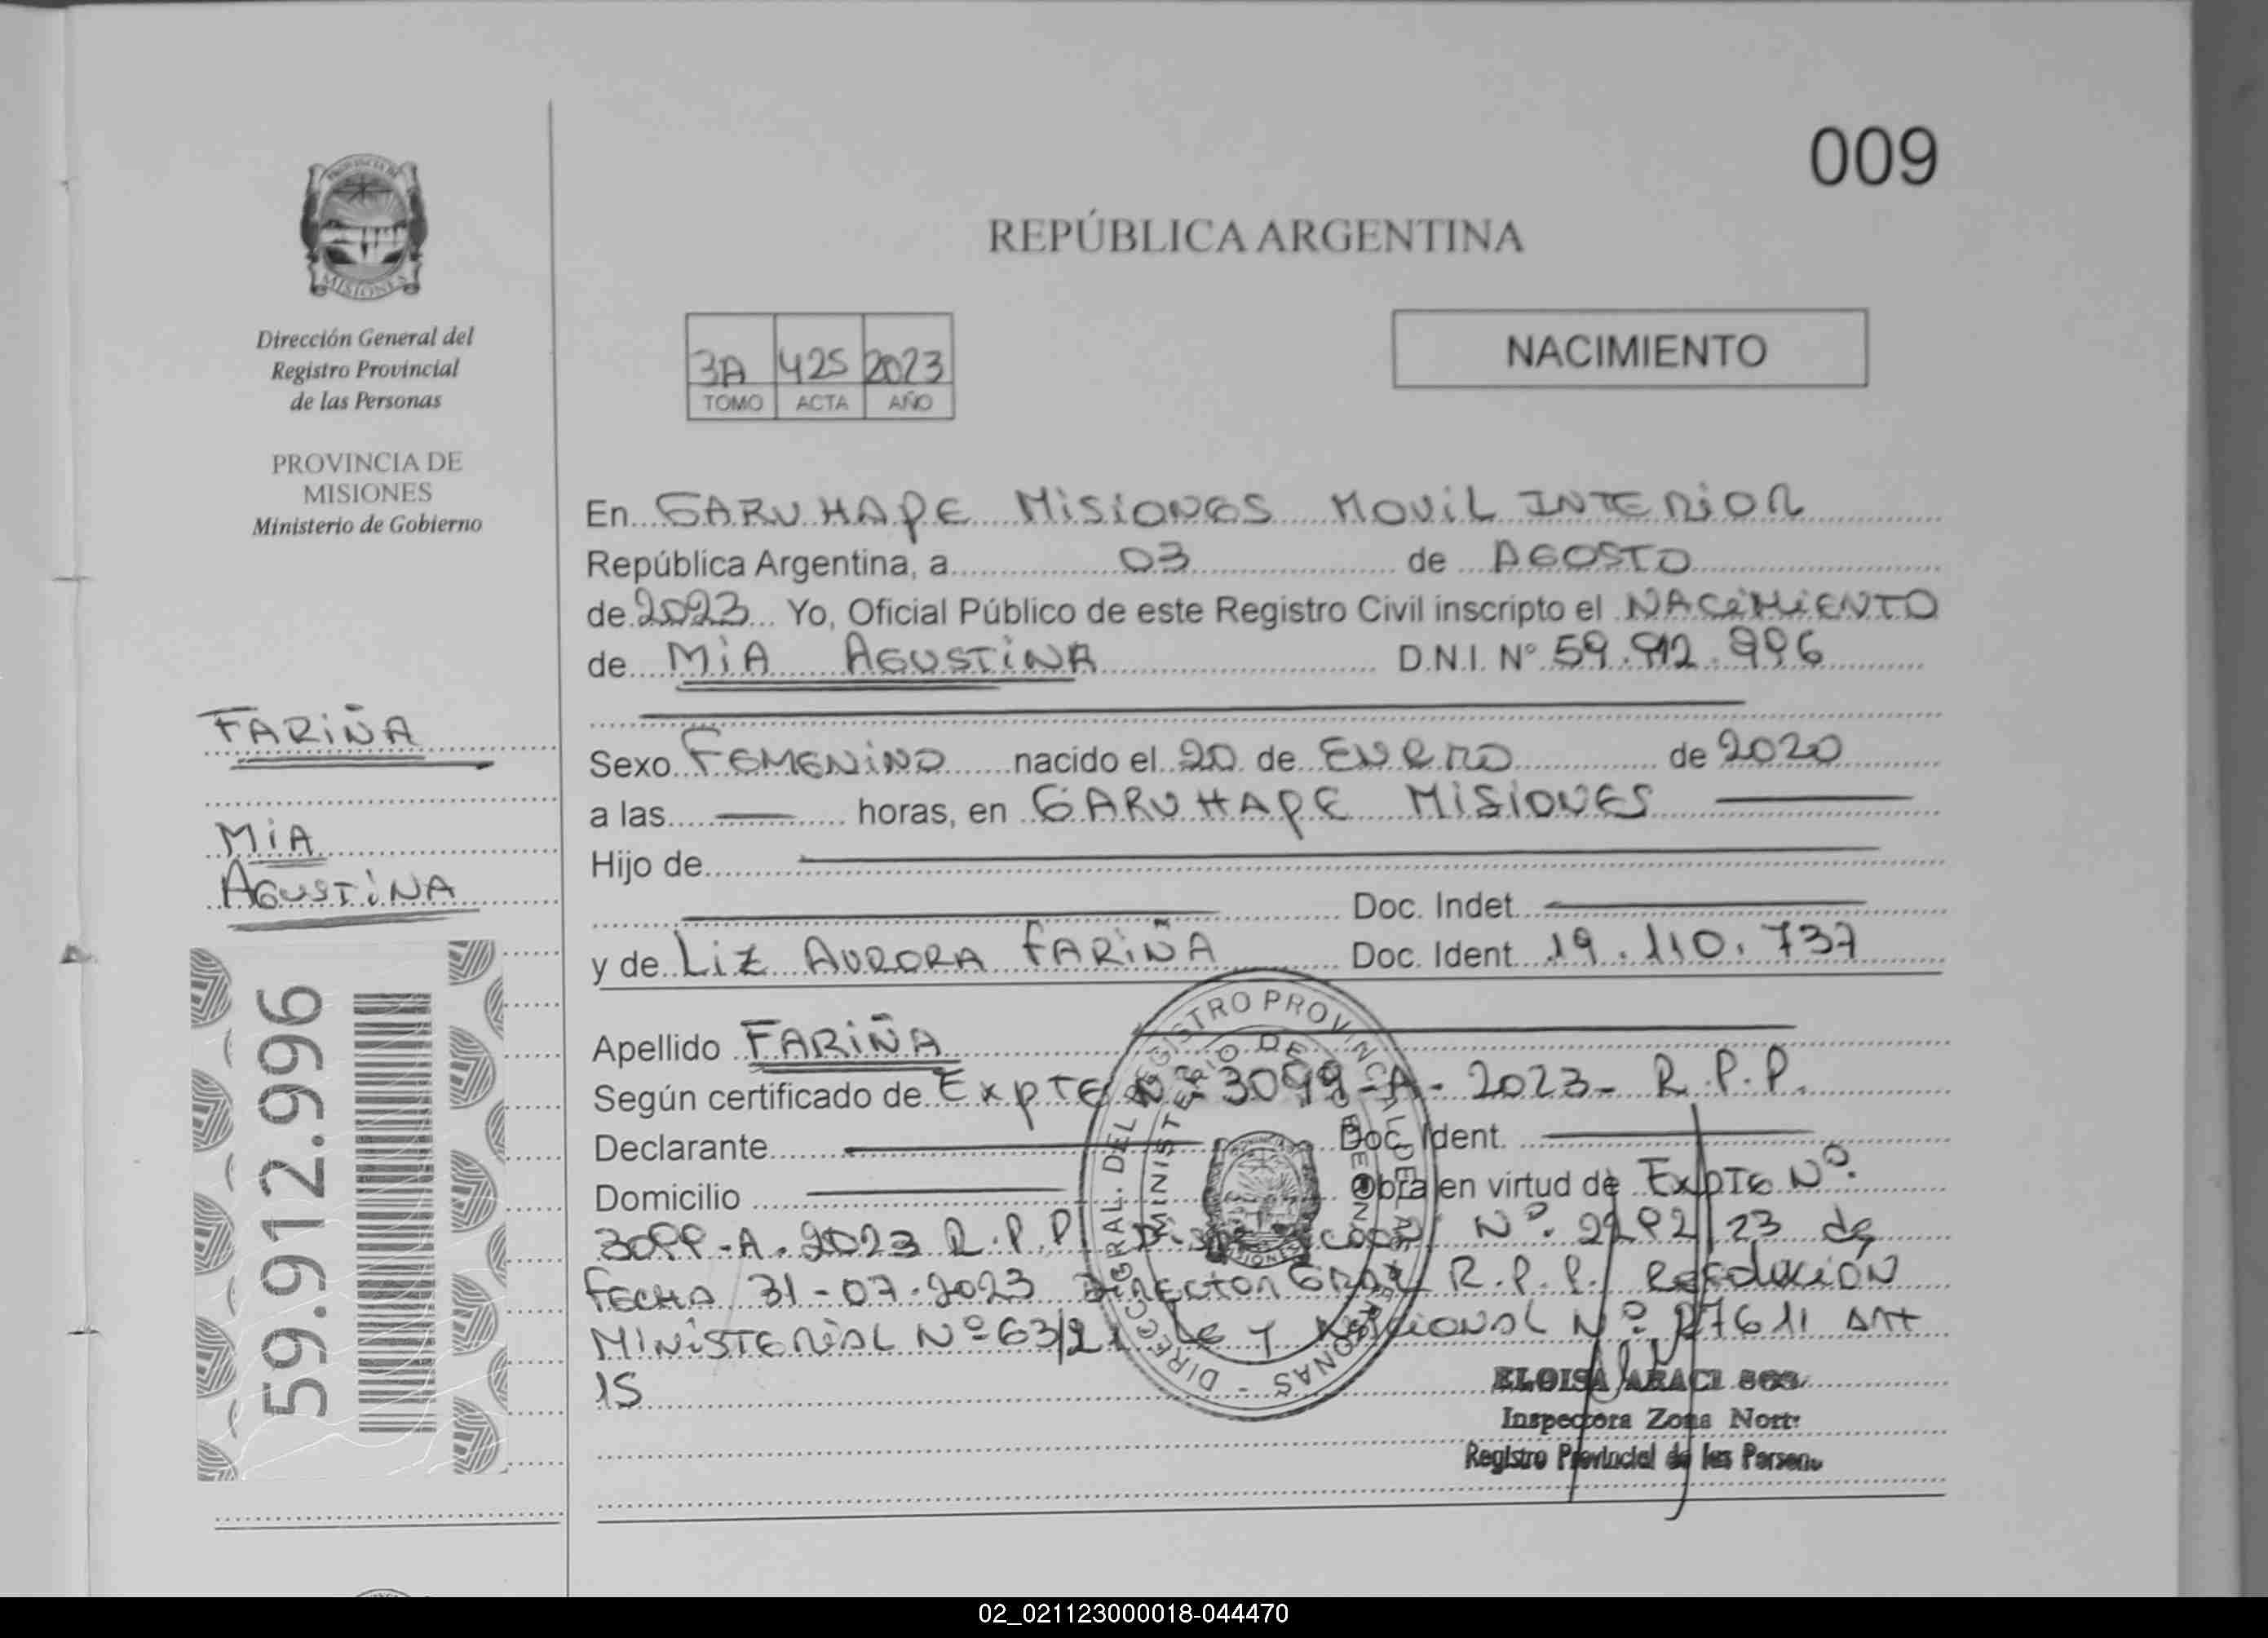 009
REPÚBLICA ARGENTINA
PROVINCIA DE
MISIONES
Dirección General del
Registro Provincial
de las Personas
PROVINCIA DE
MISIONES
Ministerio de Gobierno
FARIÑA
MIA
AGUSTINA
59.912.996
3A 425 2023
TOMO ACTA AÑO
NACIMIENTO
En GARUHAPE MISIONES MOVIL INTERIOR
República Argentina, a 03 de AGOSTO
de 2023 Yo, Oficial Público de este Registro Civil inscripto el NACIMIENTO
de MIA AGUSTINA D.N.I. Nº 59.912.996
Sexo FEMENINO nacido el 20 de ENERO de 2020
a las horas, en GARUHAPE MISIONES
Hijo de
Doc. Indet.
y de LIZ AURORA FARIÑA Doc. Ident. 19.110.737
Apellido FARIÑA
Según certificado de EXPTE Nº 3099-A-2023-R.P.P.
Declarante Doc. Ident.
Domicilio Obra en virtud de EXPTE Nº
3099-A-2023 R.P.P. Nº 23 de
FECHA 31-07-2023 DIRECTOR GRAL R.P.P. RESOLUCION
MINISTERIAL Nº 63/21 LEY NACIONAL Nº 27611 ART
15
DIRECC. GRAL. DEL REGISTRO PROVINCIAL DE LAS PERSONAS
MINISTERIO DE GOBIERNO
MISIONES
ELOISA ARACI
Inspectora Zona Norte
Registro Provincial de las Person
02_021123000018-044470